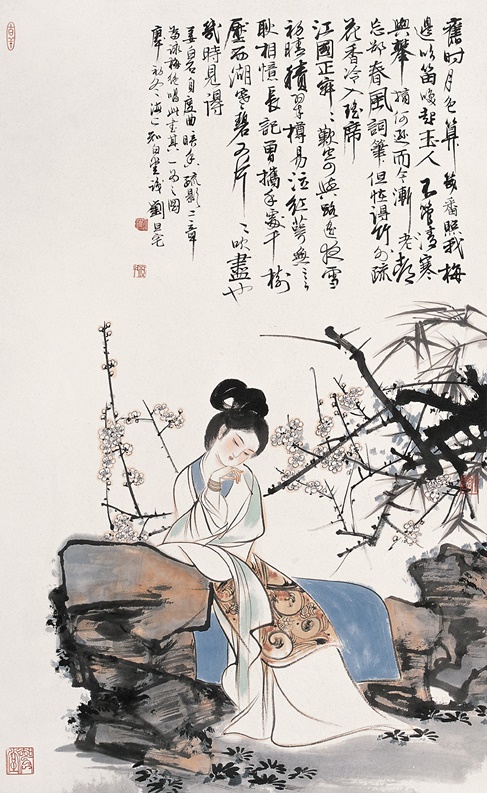 舊时月色算幾番照我梅
邊吹笛喚起玉人不管清寒
與攀摘何遜而今漸老都
忘却春風詞筆但怪得竹外疏
花香冷入瑤席
江國正寂〻歎寄與路遥夜雪
初積翠樽易泣紅萼無言
耿相憶長記曾攜手處千樹
壓西湖寒碧又片〻吹盡也
幾時見得
姜白石自度曲暗香疏影二章
為詠梅絕唱此其一為之圖
初冬海上知白堂識劉旦宅